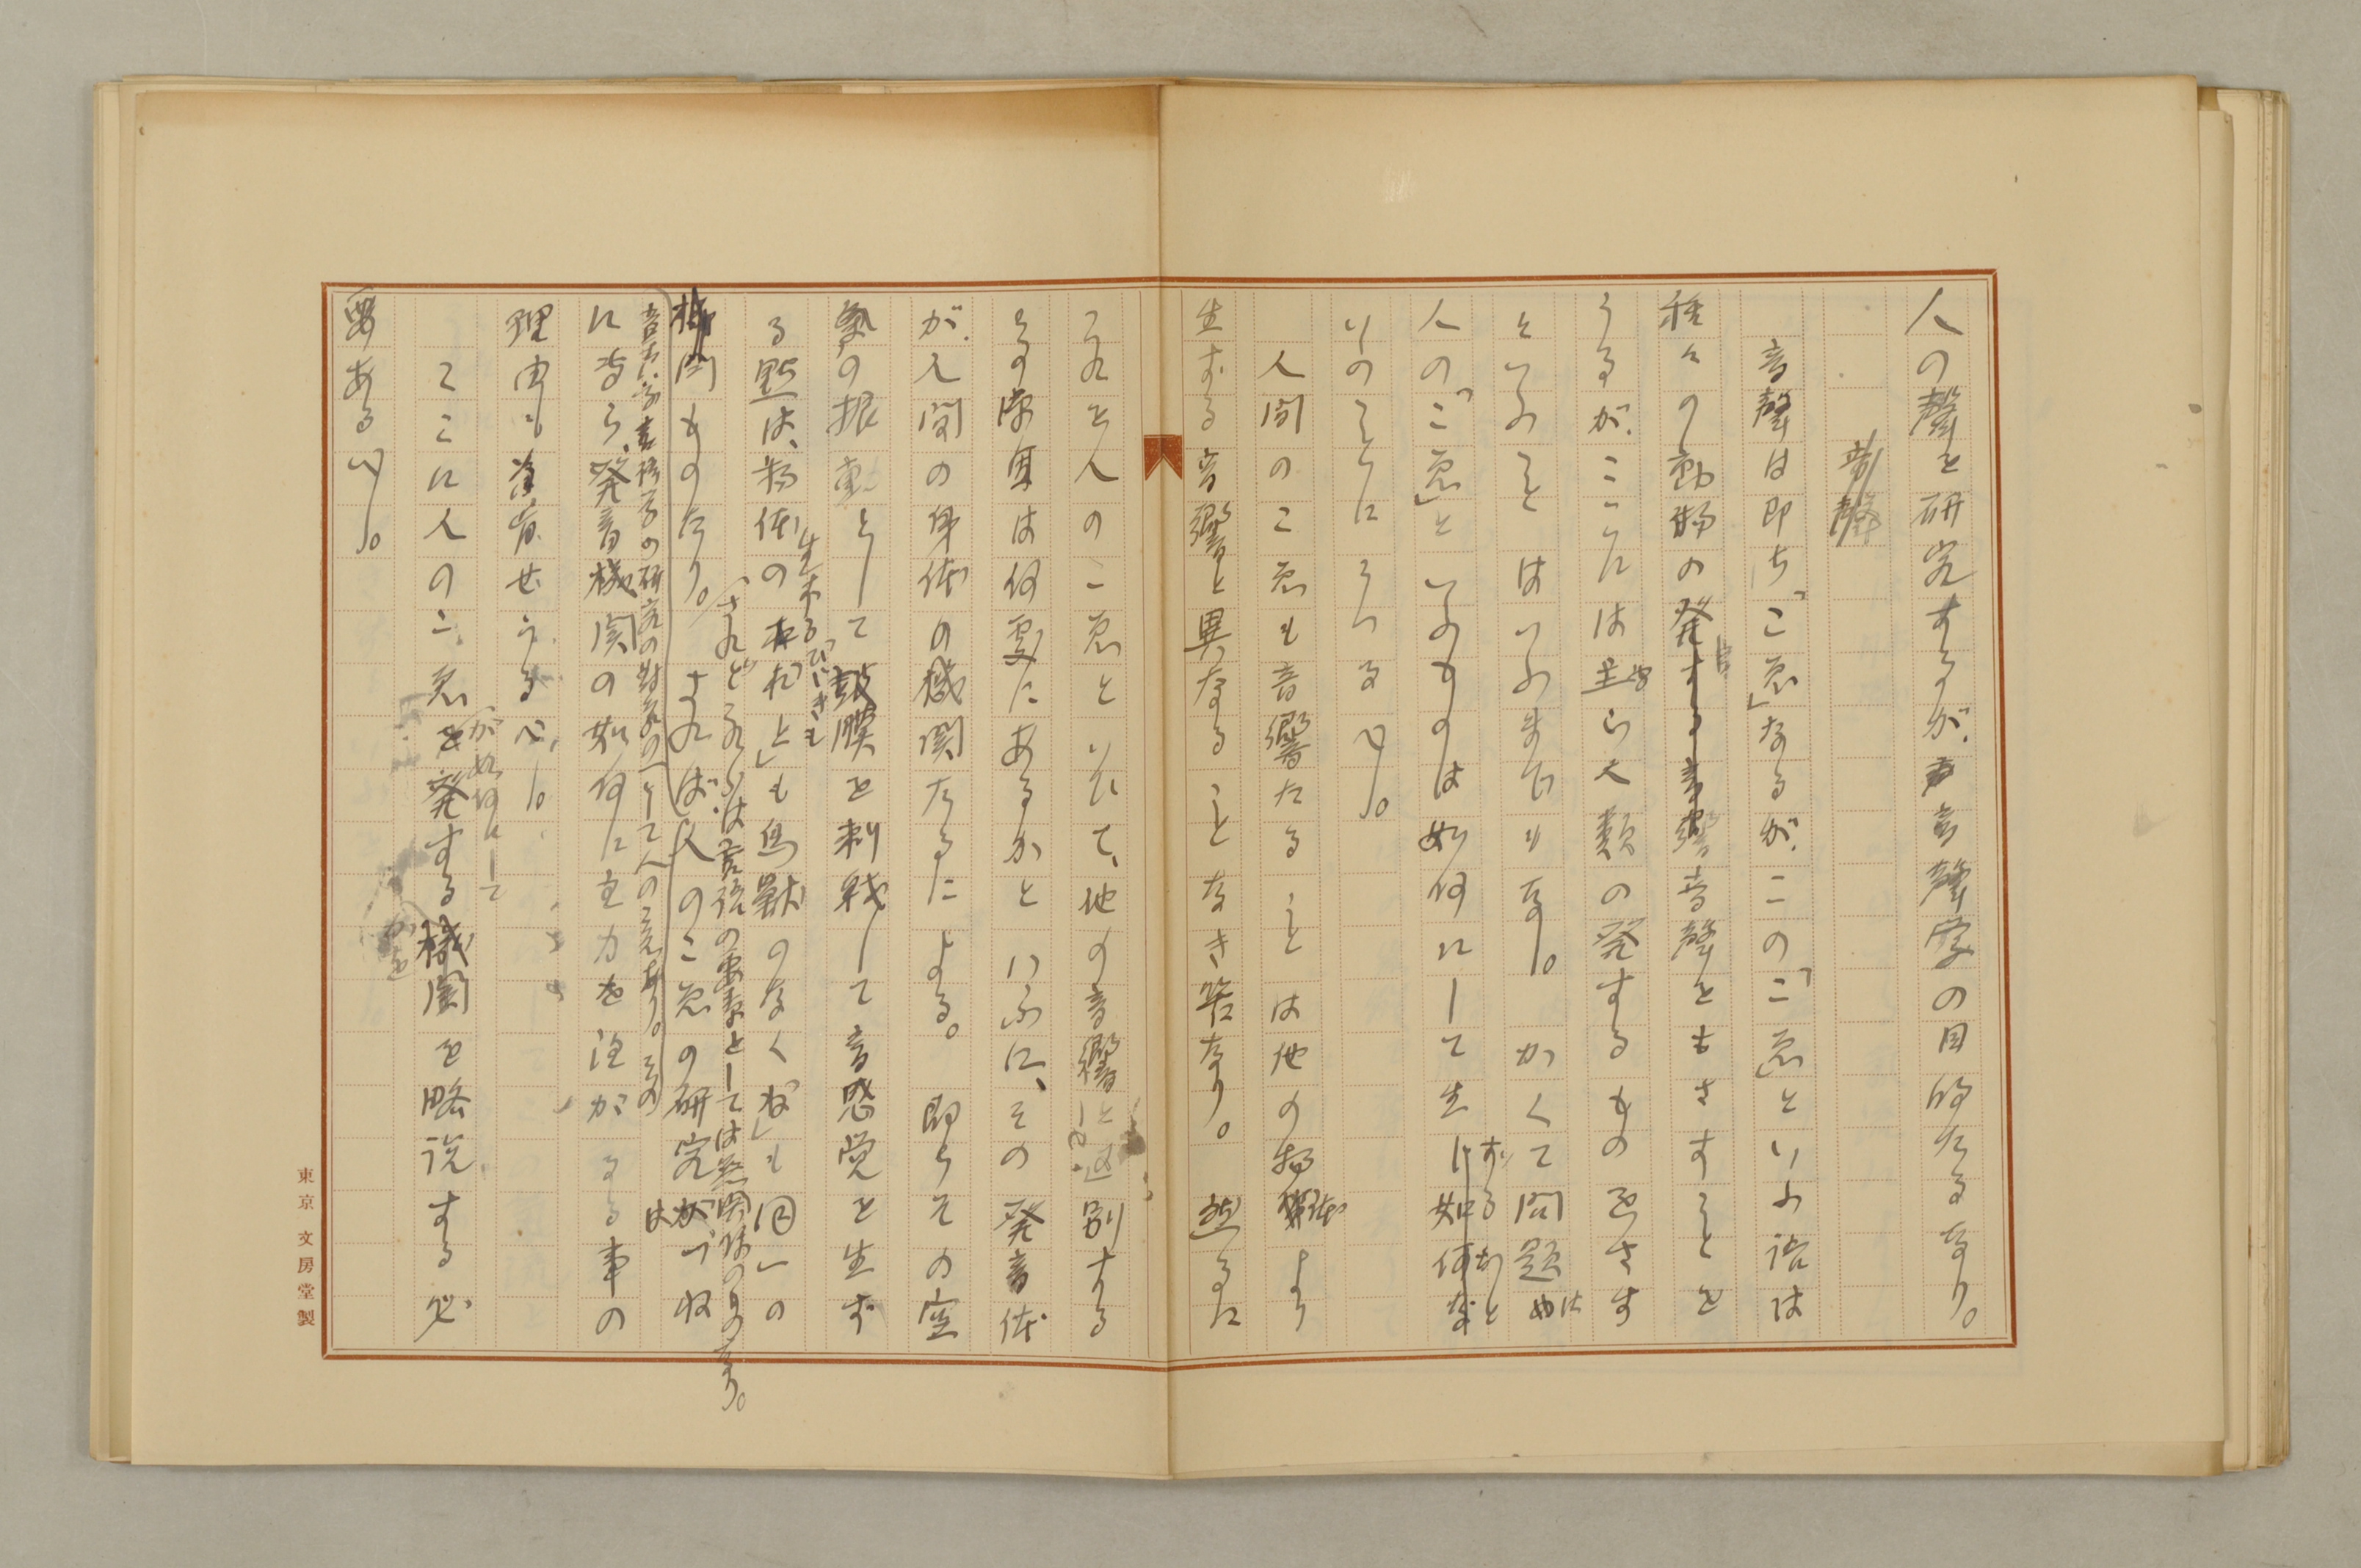 人の聲を研究するが、音聲学の目的たるなり。
音聲
音聲は即ち「こゑ」なるが、この「こゑ」といふ語は
種々の動物の発する音響音聲をもさすことを
うるが、ここには主ら人類の発するものをさす
といふことはいふまでもなし。かくて問題は
人の「こゑ」といふものは如何にして生ずるかと
いのことにうつるべし。
人間のこゑも音響たることは他の物体より
生ずる音響と異なることなき筈なり。然るに
これを人のこゑといひて、他の音響と区別する
その原因は何處にあるかといふに、その発音体
が人間の身体の機関たるによる。即ちその空
氣の振動として鼓膜を刺戟して音感覚を生ず
る點は、物体の
生ずるひびきも
も鳥獣のなくねも同一の
されど
は言語の要素としては無関係のものなり。
ものたり。さればこの人のこゑの研究は
音声学言語学の研究の対象の一として人のこゑあり。その
に専ら、発音機関の如何に主力を注がるる事の
理由も首肯せらるべし。
が如何にして
ここに人のこゑを発する機関を略説する必
要あるべし。
東京文房堂製